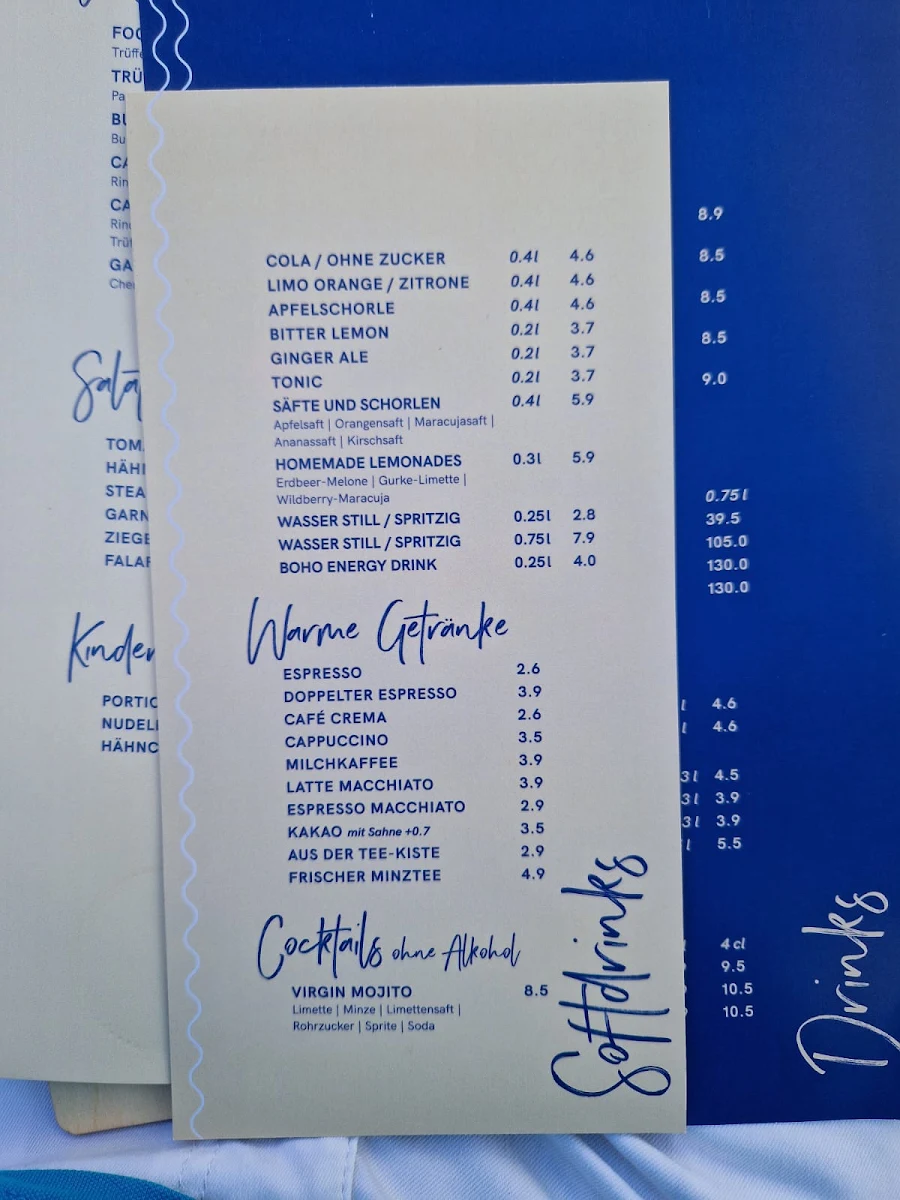 COLA / OHNE ZUCKER 0.4l 4.6
LIMO ORANGE / ZITRONE 0.4l 4.6
APFELSCHORLE 0.4l 4.6
BITTER LEMON 0.2l 3.7
GINGER ALE 0.2l 3.7
TONIC 0.2l 3.7
SÄFTE UND SCHORLEN 0.4l 5.9
Apfelsaft | Orangensaft | Maracujasaft |
Ananassaft | Kirschsaft
HOMEMADE LEMONADES 0.3l 5.9
Erdbeer-Melone | Gurke-Limette |
Wildberry-Maracuja
WASSER STILL / SPRITZIG 0.25l 2.8
WASSER STILL / SPRITZIG 0.75l 7.9
BOHO ENERGY DRINK 0.25l 4.0
Warme Getränke
ESPRESSO 2.6
DOPPELTER ESPRESSO 3.9
CAFÉ CREMA 2.6
CAPPUCCINO 3.5
MILCHKAFFEE 3.9
LATTE MACCHIATO 3.9
ESPRESSO MACCHIATO 2.9
KAKAO mit Sahne +0.7 3.5
AUS DER TEE-KISTE 2.9
FRISCHER MINZTEE 4.9
Cocktails ohne Alkohol
VIRGIN MOJITO 8.5
Limette | Minze | Limettensaft |
Rohrzucker | Sprite | Soda
Softdrinks
8.9
8.5
8.5
8.5
9.0
0.75l
39.5
105.0
130.0
130.0
l 4.6
l 4.6
3l 4.5
3l 3.9
3l 3.9
l 5.5
4 cl
9.5
10.5
10.5
Drinks